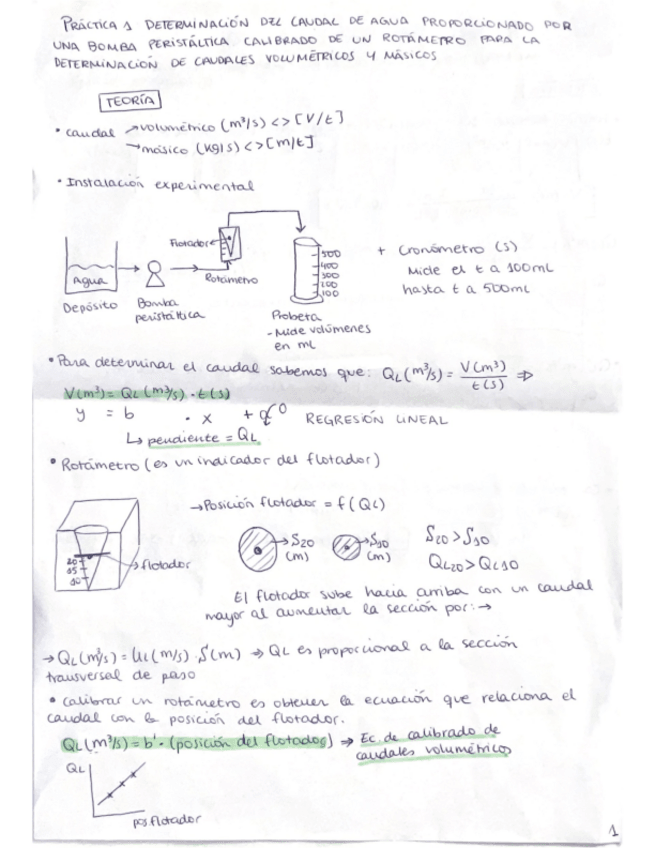 PRÁCTICA 1 DETERMINACIÓN DEL CAUDAL DE AGUA PROPORCIONADO POR
UNA BOMBA PERISTÁLTICA CALIBRADO DE UN ROTÁMETRO PARA LA
DETERMINACIÓN DE CAUDALES VOLUMÉTRICOS Y MÁSICOS
TEORÍA
• caudal → volumétrico (m³/s) <> [V/t]
→ másico (kg/s) <> [m/t]
• Instalación experimental
Flotador
Agua
Depósito
Bomba
peristáltica
Rotámetro
500
400
300
200
100
Probeta
- Mide volúmenes
en mL
+ Cronómetro (s)
Mide el t a 100mL
hasta t a 500mL
• Para determinar el caudal sabemos que: QL (m³/s) = V(m³) / t(s) ⇒
V(m³) = QL (m³/s) · t(s)
y = b · x + a⁰ REGRESIÓN LINEAL
↳ pendiente = QL
• Rotámetro (es un indicador del flotador)
→ Posición flotador = f(QL)
20
15
10
→ flotador
→ S20
(m)
→ S10
(m)
S20 > S10
QL20 > QL10
El flotador sube hacia arriba con un caudal
mayor al aumentar la sección por: →
→ QL (m³/s) = UL (m/s) · S(m) ⇒ QL es proporcional a la sección
transversal de paso
• calibrar un rotámetro es obtener la ecuación que relaciona el
caudal con la posición del flotador.
QL (m³/s) = b' · (posición del flotador) ⇒ Ec. de calibrado de
caudales volumétricos
QL
pos flotador
1